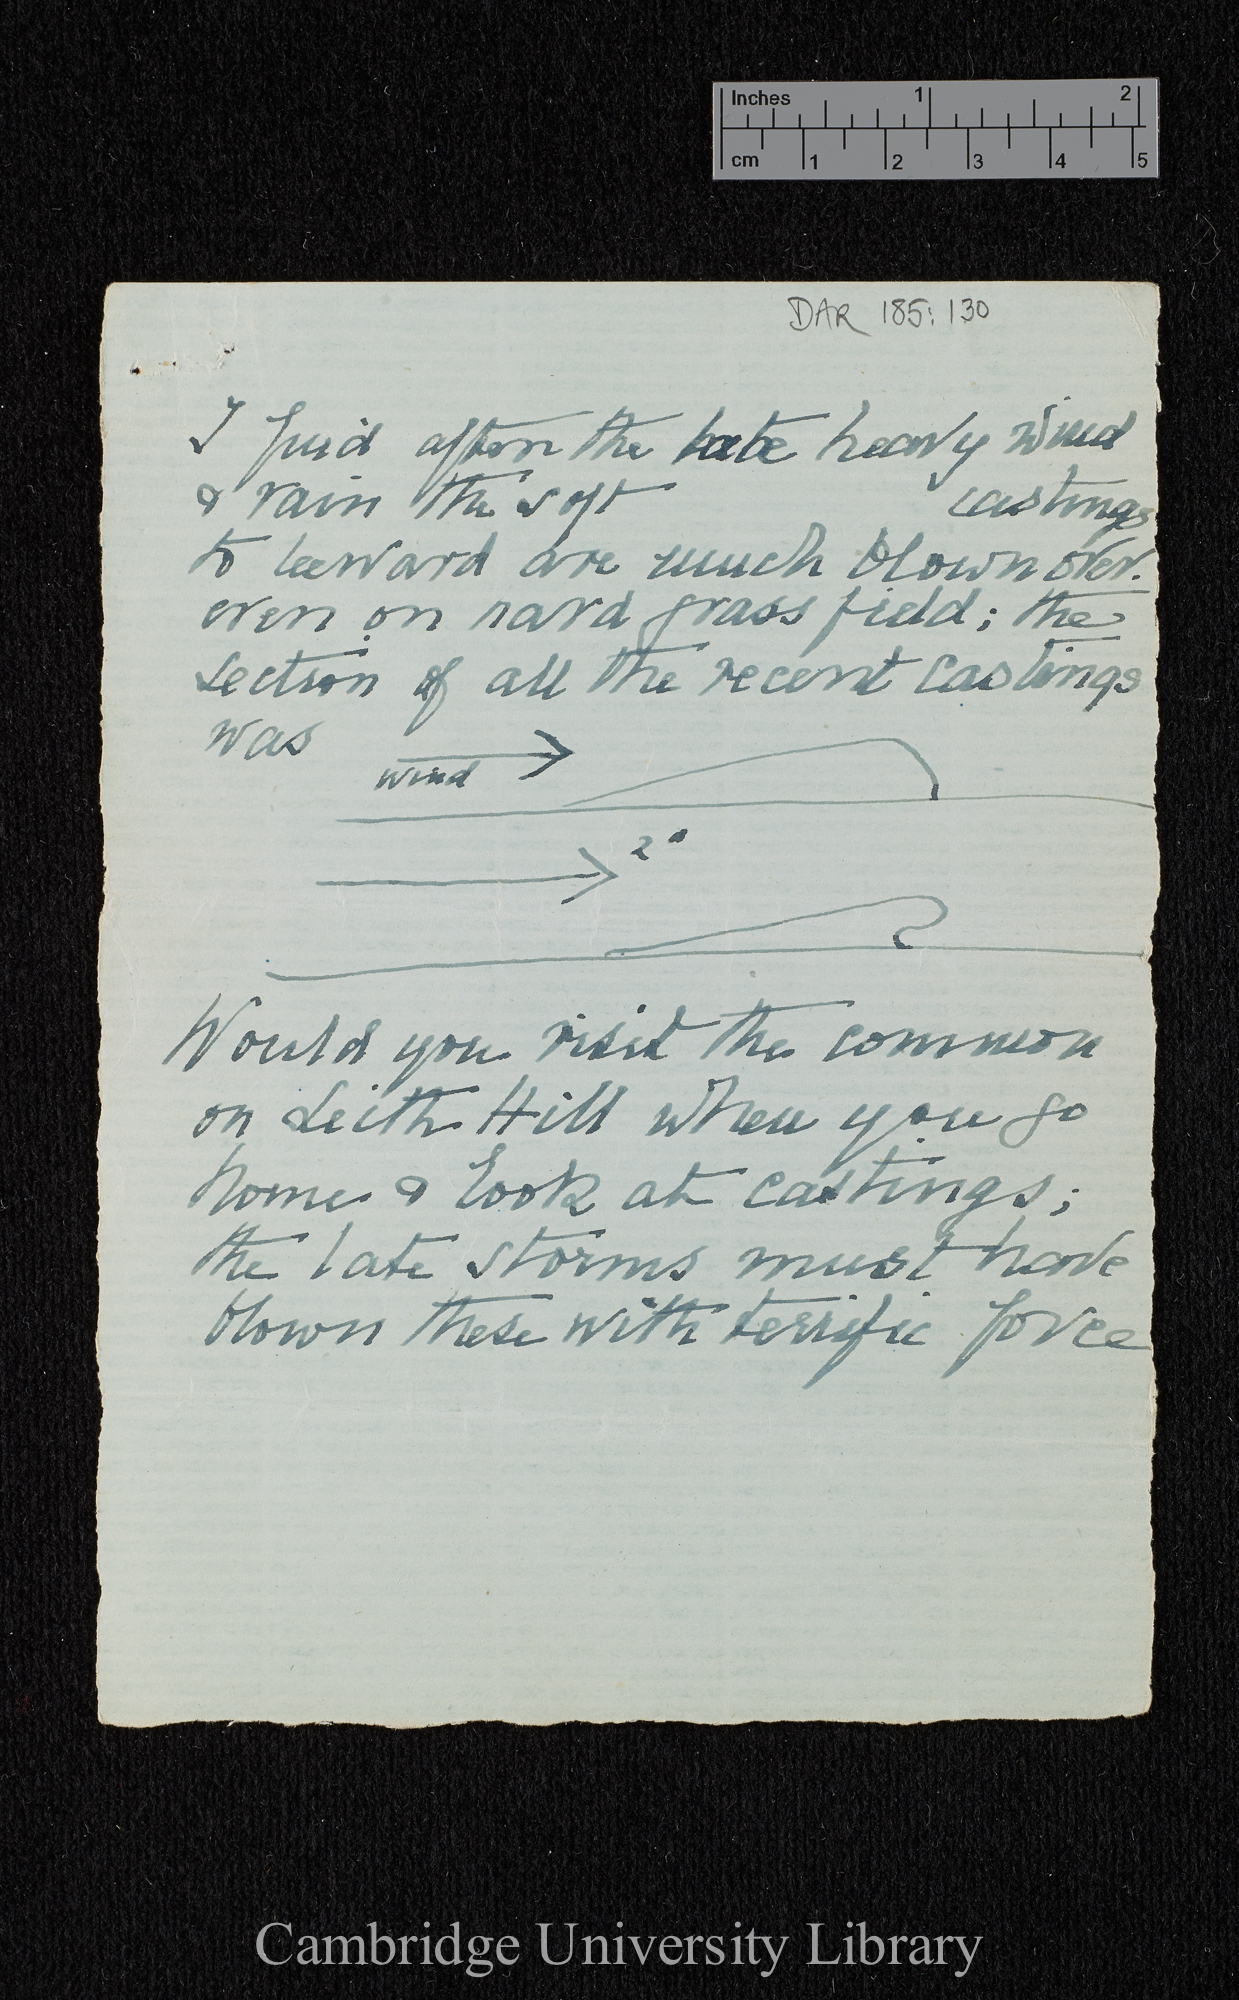 Inches 1 2
cm 1 2 3 4 5
DAR 185:130
I find after the late heavy wind
& rain the soft castings
to leeward are much blown over.
even on hard grass field; the
section of all the recent castings
was
wind
2°
Would you visit the common
on Leith Hill when you go
home & look at castings;
the late storms must have
blown these with terrific force
Cambridge University Library